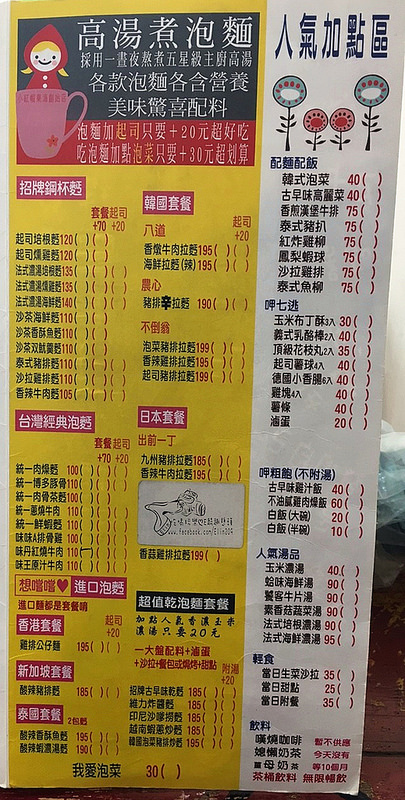 高湯煮泡麵
採用一晝夜熬煮五星級主廚高湯
各款泡麵各含營養
美味驚喜配料
泡麵加起司只要+20元超好吃
吃泡麵加點泡菜只要+30元超划算
招牌鋼杯麵
套餐 起司
+70 +20
起司培根麵120( )( )
起司燻雞麵120( )( )
法式濃湯培根麵135( )( )
法式濃湯燻雞麵135( )( )
法式濃湯海鮮麵140( )( )
沙茶海鮮麵110( )( )
沙茶香酥魚麵110( )( )
沙茶双魷羹麵110( )( )
泰式豬排麵110( )( )
沙拉雞排麵110( )( )
香辣牛肉麵105( )( )
台灣經典泡麵
套餐 起司
+70 +20
統一肉燥麵 100( )( )
統一博多豚骨110( )( )
統一肉骨茶麵100( )( )
統一蔥燒牛肉 110( )( )
統一鮮蝦麵 110( )( )
味味A排骨雞 100( )( )
味丹紅燒牛肉 110( )( )
味王原汁牛肉 110( )( )
想嚐嚐♥進口泡麵
進口麵都是套餐喲
香港套餐
起司
+20
雞排公仔麵 195( )( )
新加坡套餐
酸辣豬排麵 185( )( )
泰國套餐 2包麵
酸辣香酥魚麵 195( )( )
酸辣蝦濃湯麵 190( )( )
韓國套餐
起司
+20
八道
香燉牛肉拉麵195( )( )
海鮮拉麵(辣)195( )( )
農心
豬排辛拉麵 190( )( )
不倒翁
泡菜豬排拉麵199( )( )
香辣雞排拉麵195( )( )
起司豬排拉麵199( )( )
日本套餐
出前一丁
九州豬排拉麵185( )( )
香辣牛肉拉麵195( )( )
www.facebook.com/Elin209
香蒜雞排拉麵199( )
超值乾泡麵套餐
加點人氣香濃玉米
濃湯只要20元
一大盤配料+滷蛋
+沙拉+餐包或焗烤+甜點
附湯
+20
招牌古早味乾麵 185( )( )
維力炸醬麵 185( )( )
印尼沙嗲撈麵 185( )( )
越南蝦蔥炒麵 185( )( )
韓國泡菜豬排炒麵 195( )( )
我愛泡菜 30( )
人氣加點區
配麵配飯
韓式泡菜 40( )
古早味高麗菜 40( )
香煎漢堡牛排 75( )
泰式豬扒 75( )
紅炸雞柳 75( )
鳳梨蝦球 75( )
沙拉雞排 75( )
泰式魚柳 75( )
呷七逃
玉米布丁酥3入 30( )
義式乳酪棒2入 40( )
頂級花枝丸2入 35( )
起司薯球4入 40( )
德國小香腸6入 40( )
雞塊4入 40( )
薯條 40( )
滷蛋 20( )
呷粗飽(不附湯)
古早味雞汁飯 40( )
不油膩雞肉燥飯 60( )
白飯(大碗) 20( )
白飯(半碗) 10( )
人氣湯品
玉米濃湯 40( )
蛤味海鮮湯 90( )
饕客牛片湯 90( )
素香菇蔬菜湯 90( )
法式培根濃湯 90( )
法式海鮮濃湯 95( )
輕食
當日生菜沙拉 35( )
當日甜點 25( )
當日附餐 35( )
飲料
嘆燒咖啡 暫不供應
媳懶奶茶 今天沒有
薑母奶茶 等10個月
茶桶飲料 無限暢飲